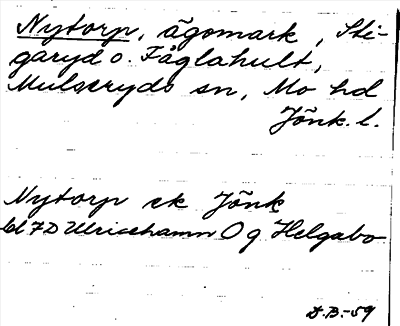 Nytorp, ägomark, Sti-
garyd o. Fåglahult,
Mulseryds sn, Mo hd
Jönk. l.
Nytorp ek Jönk
bl 7D Ulricehamn Og Helgabo
D.B.-59